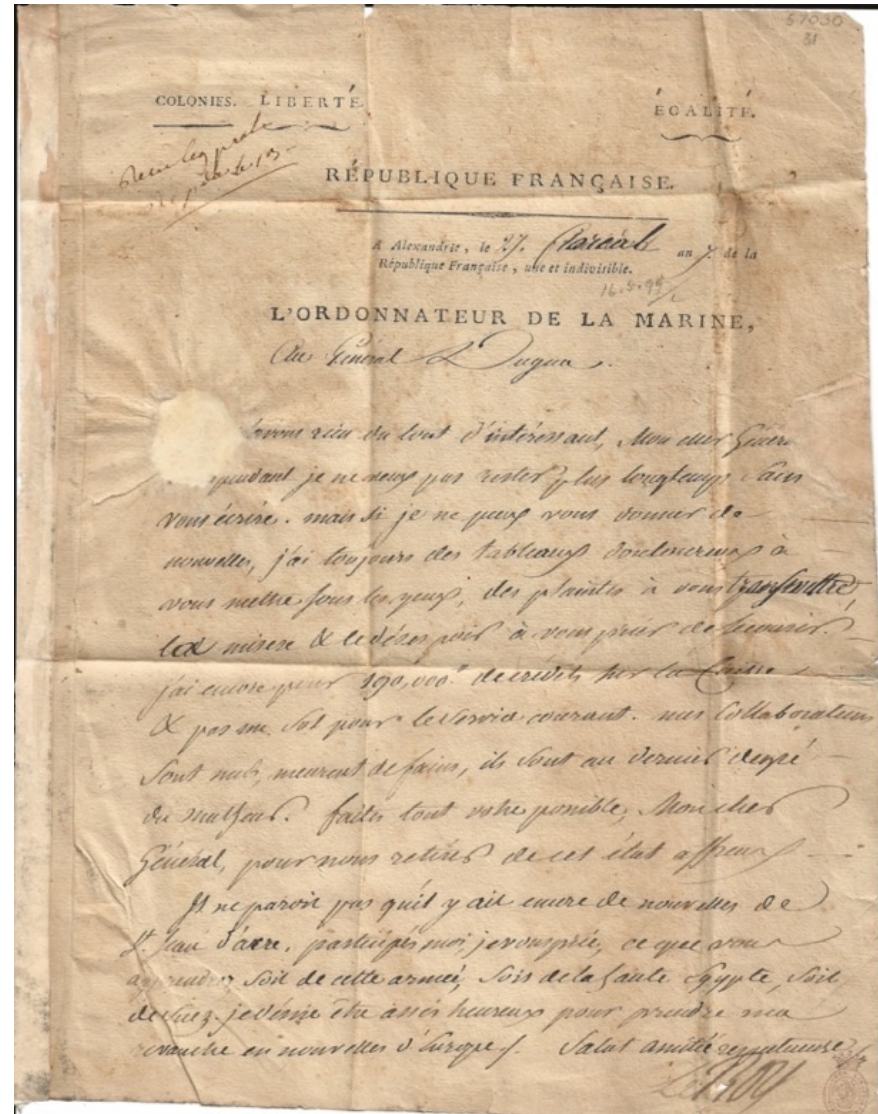 57030
31
COLONIES. LIBERTÉ. ÉGALITÉ.
RÉPUBLIQUE FRANÇAISE.
A Alexandrie, le 27. floréal an 7. de la
République Française, une et indivisible.
16.5.99
L'ORDONNATEUR DE LA MARINE,
Au Général Dugua.
avons rien du tout d'intéressant, Mon cher Génér
pendant je ne veux pas rester plus longtemps sans
vous écrire. mais si je ne peux vous donner de
nouvelles, j'ai toujours des tableaux douloureux à
vous mettre sous les yeux, des plaintes à vous transmettre,
la misere & le désespoir à vous prier de secourir.
j'ai encore pour 190,000 de crédits sur la Caisse
& pas un sol pour le service courant. nos Collaborateurs
sont nuds, meurent de faim, ils sont au dernier degré
du malheur. faites tout votre possible, Mon cher
Général, pour nous retirer de cet état affreux
Il ne paroit pas qu'il y ait encore de nouvelles de
St. Jean d'acre. participés moi, je vous prie, ce que vous
apprendrez soit de cette armée, soit de la haute Egypte, soit
de Suez. je désire être assés heureux pour prendre ma
revanche en nouvelles d'Europe. Salut amitié respectueuse
Le ROY